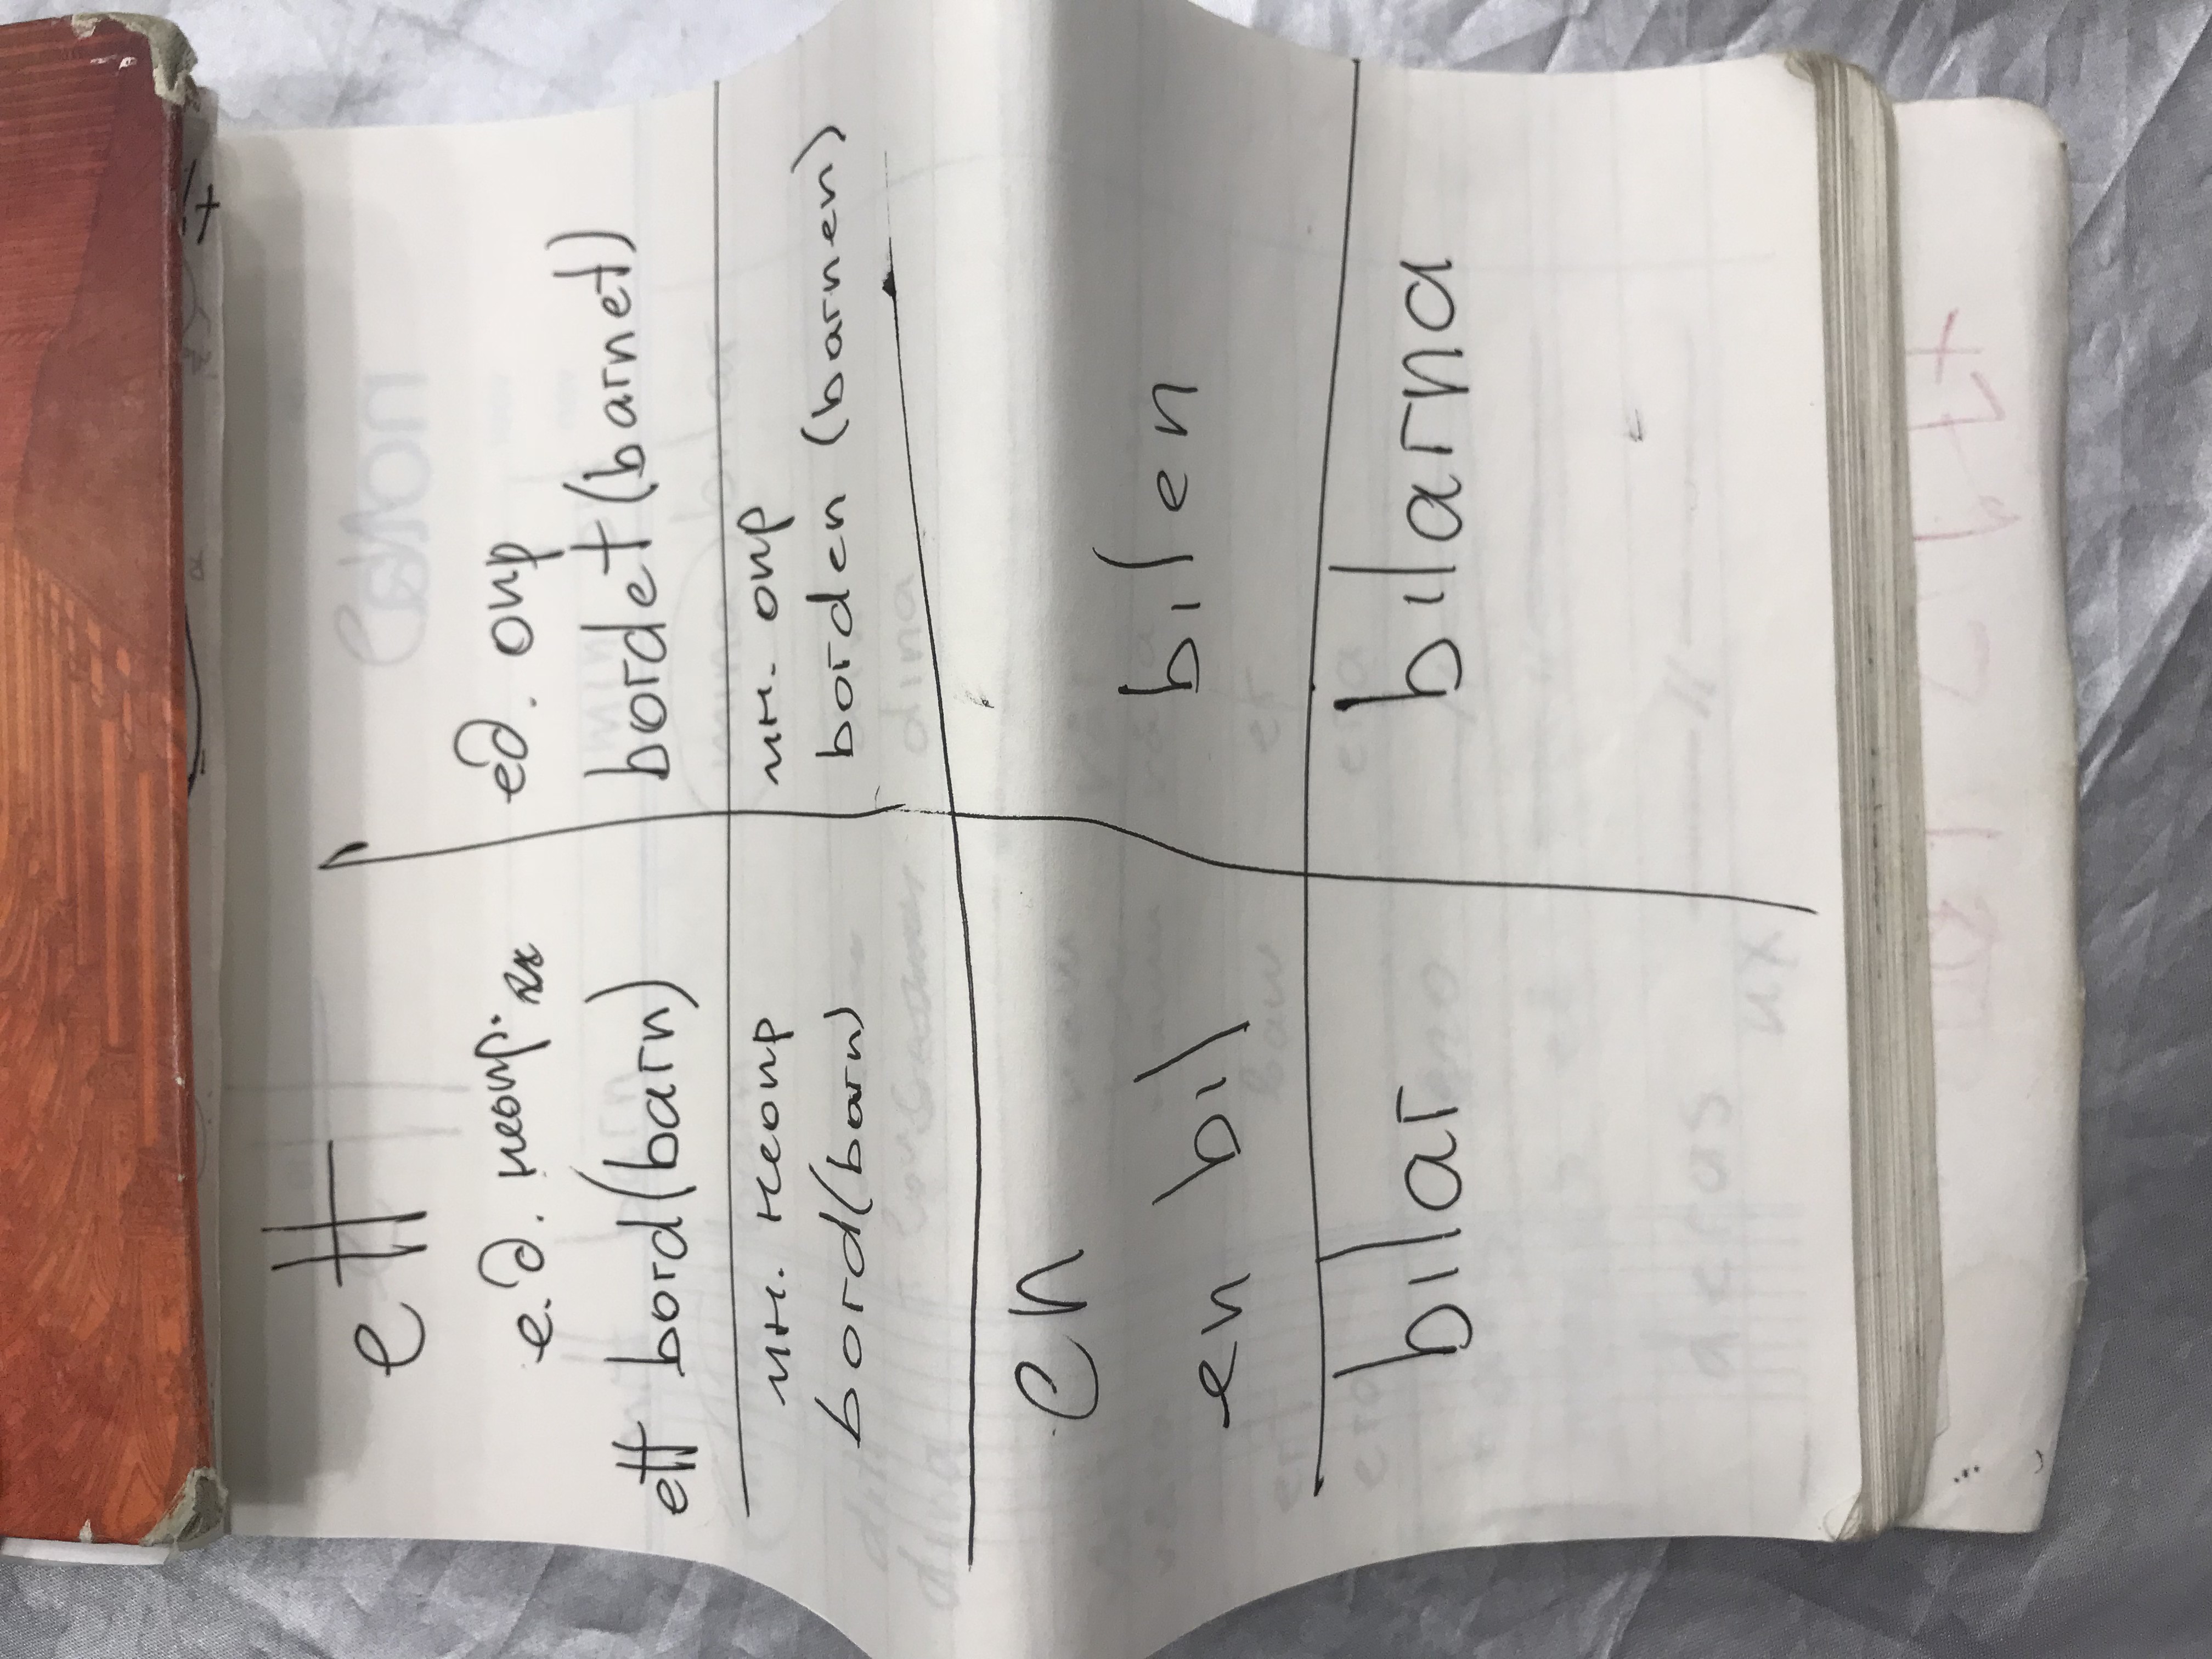 ett
е.д. неопр.
ett bord (barn)
ед. опр
bordet (barnet)
мн. неопр
bord (barn)
мн. опр
borden (barnen)
en
en bil
bilen
bilar
bilarna